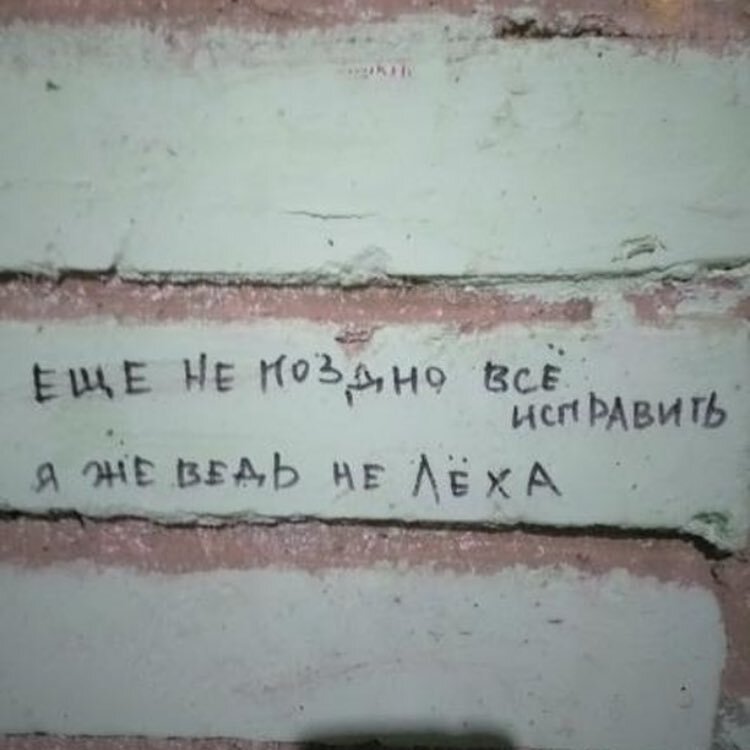 ЕЩЕ НЕ ПОЗДНО ВСЁ
ИСПРАВИТЬ
Я ЖЕ ВЕДЬ НЕ ЛЁХА